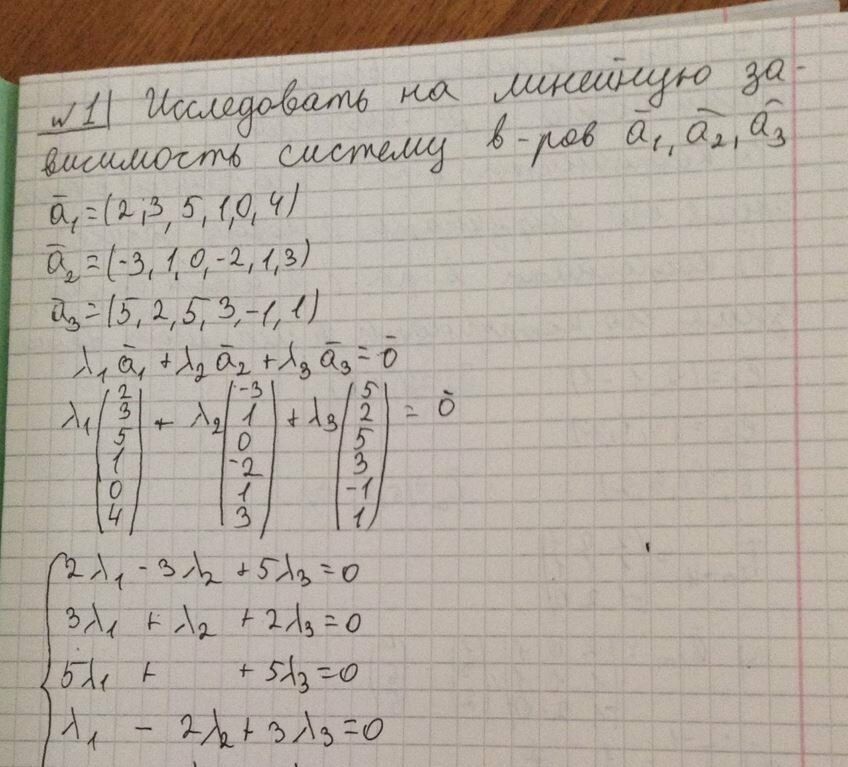 №1| Исследовать на линейную за-
висимость систему в-ров a̅₁, a̅₂, a̅₃
a̅₁=(2,3,5,1,0,4)
a̅₂=(-3,1,0,-2,1,3)
a̅₃=(5,2,5,3,-1,1)
λ₁a̅₁+λ₂a̅₂+λ₃a̅₃=0̅
λ₁(2 3 5 1 0 4) + λ₂(-3 1 0 -2 1 3) + λ₃(5 2 5 3 -1 1) = 0̅
2λ₁-3λ₂+5λ₃=0
3λ₁+λ₂+2λ₃=0
5λ₁+ +5λ₃=0
λ₁-2λ₂+3λ₃=0